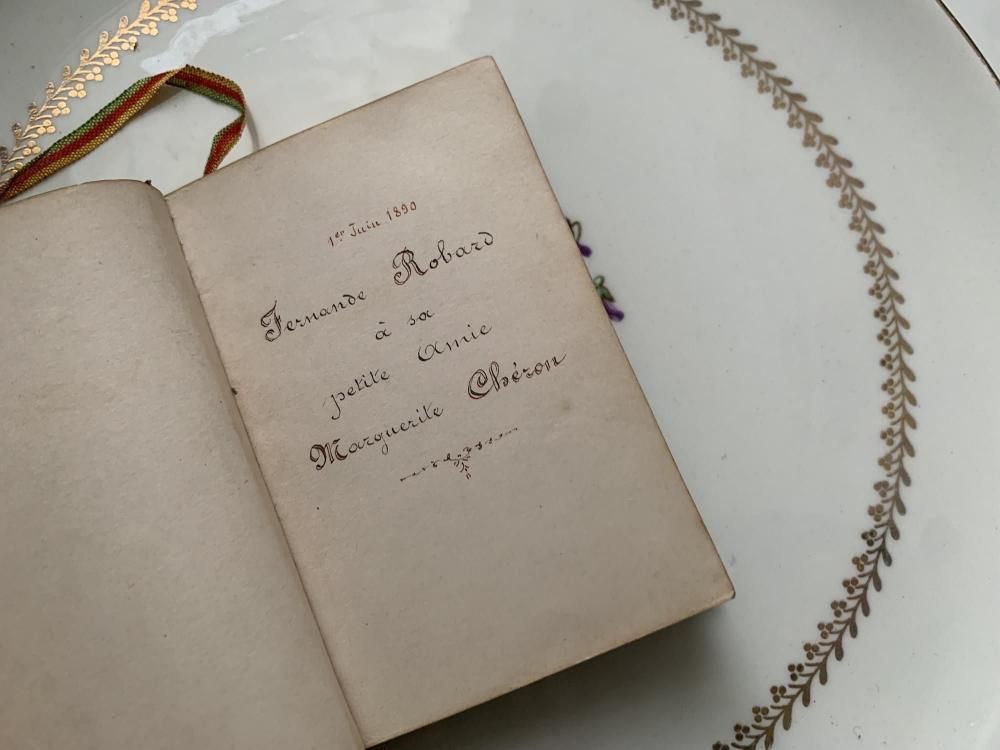 1er Juin 1890
Fernande Robard
à sa
petite Amie
Marguerite Chéron